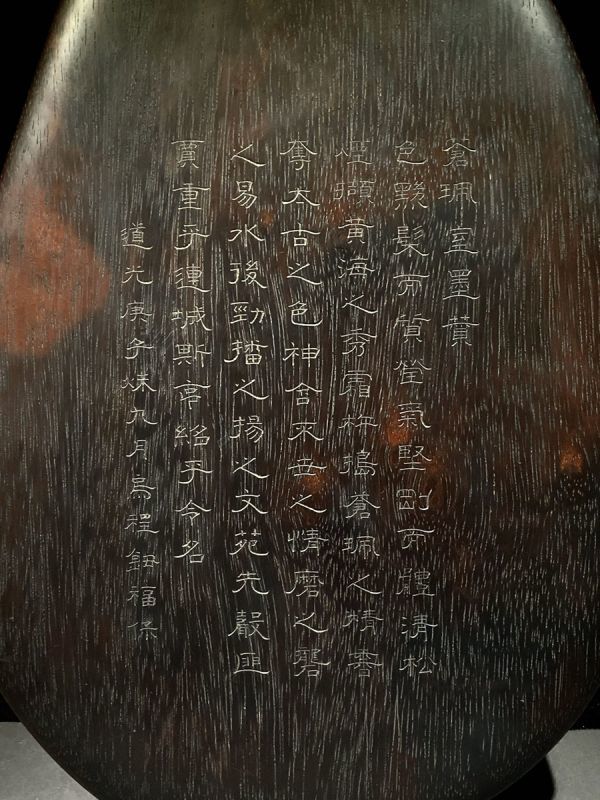 蒼珮室墨贊
色黟髮而質瑩氣堅剛而體清松
煙擷黃海之秀霜杵搗蒼珮之精
奪太古之色神含不世之情磨之礱
之易水後勁播之揚之文苑先聲匪
賈重乎連城斯享紹乎令名
道光庚子秌九月烏程鈕福保